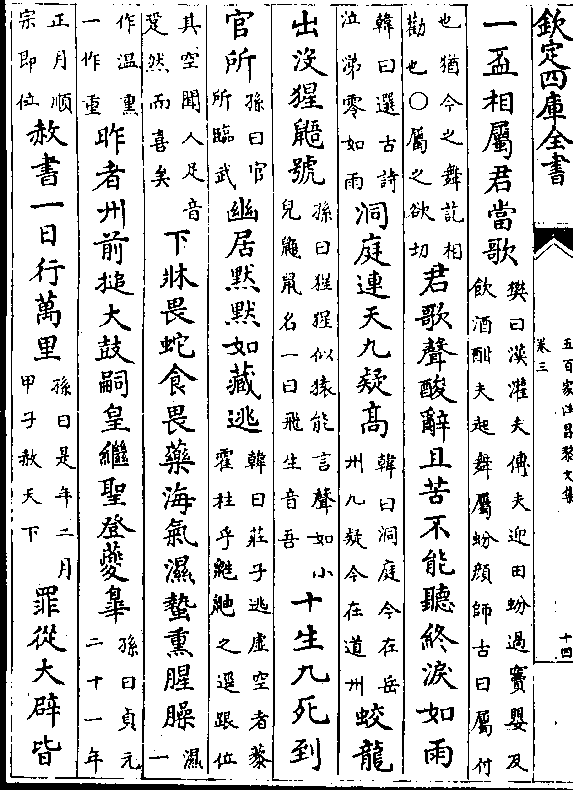 欽定四庫全書
五百家注昌黎文集
卷三
十四
一盃相屬君當歌樊曰漢灌夫傳夫迎田蚡過竇嬰及飲酒酣夫起舞屬蚡顔師古曰屬付
也猶今之舞訖相勸也○屬之欲切君歌聲酸辭且苦不能聽終淚如雨
韓曰選古詩泣涕零如雨洞庭連天九疑髙韓曰洞庭今在岳州九疑今在道州蛟龍
出没猩鼯號孫曰猩猩似猿能言聲如小兒鼯鼠名一曰飛生音吾十生九死到
官所孫曰官所臨武幽居默默如藏逃韓曰莊子逃虚空者藜藿杜乎鼪鼬之逕踉位
其空聞人足音跫然而喜矣下牀畏蛇食畏藥海氣濕蟄熏腥臊濕一
作温熏一作重昨者州前搥大鼓嗣皇繼聖登夔臯孫曰貞元二十一年
正月順宗即位赦書一日行萬里孫曰是年二月甲子赦天下罪從大辟皆